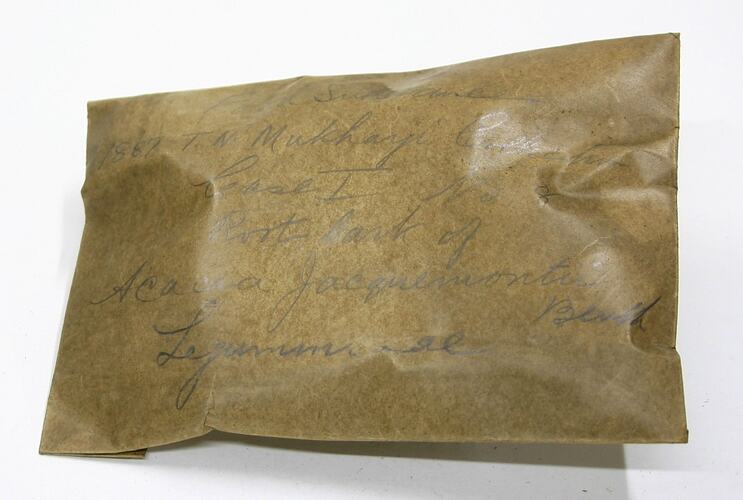 1867 T. N. Mukharji
Case I No
Root bark of
Acacia Jacquemontii
Benth
Leguminosae